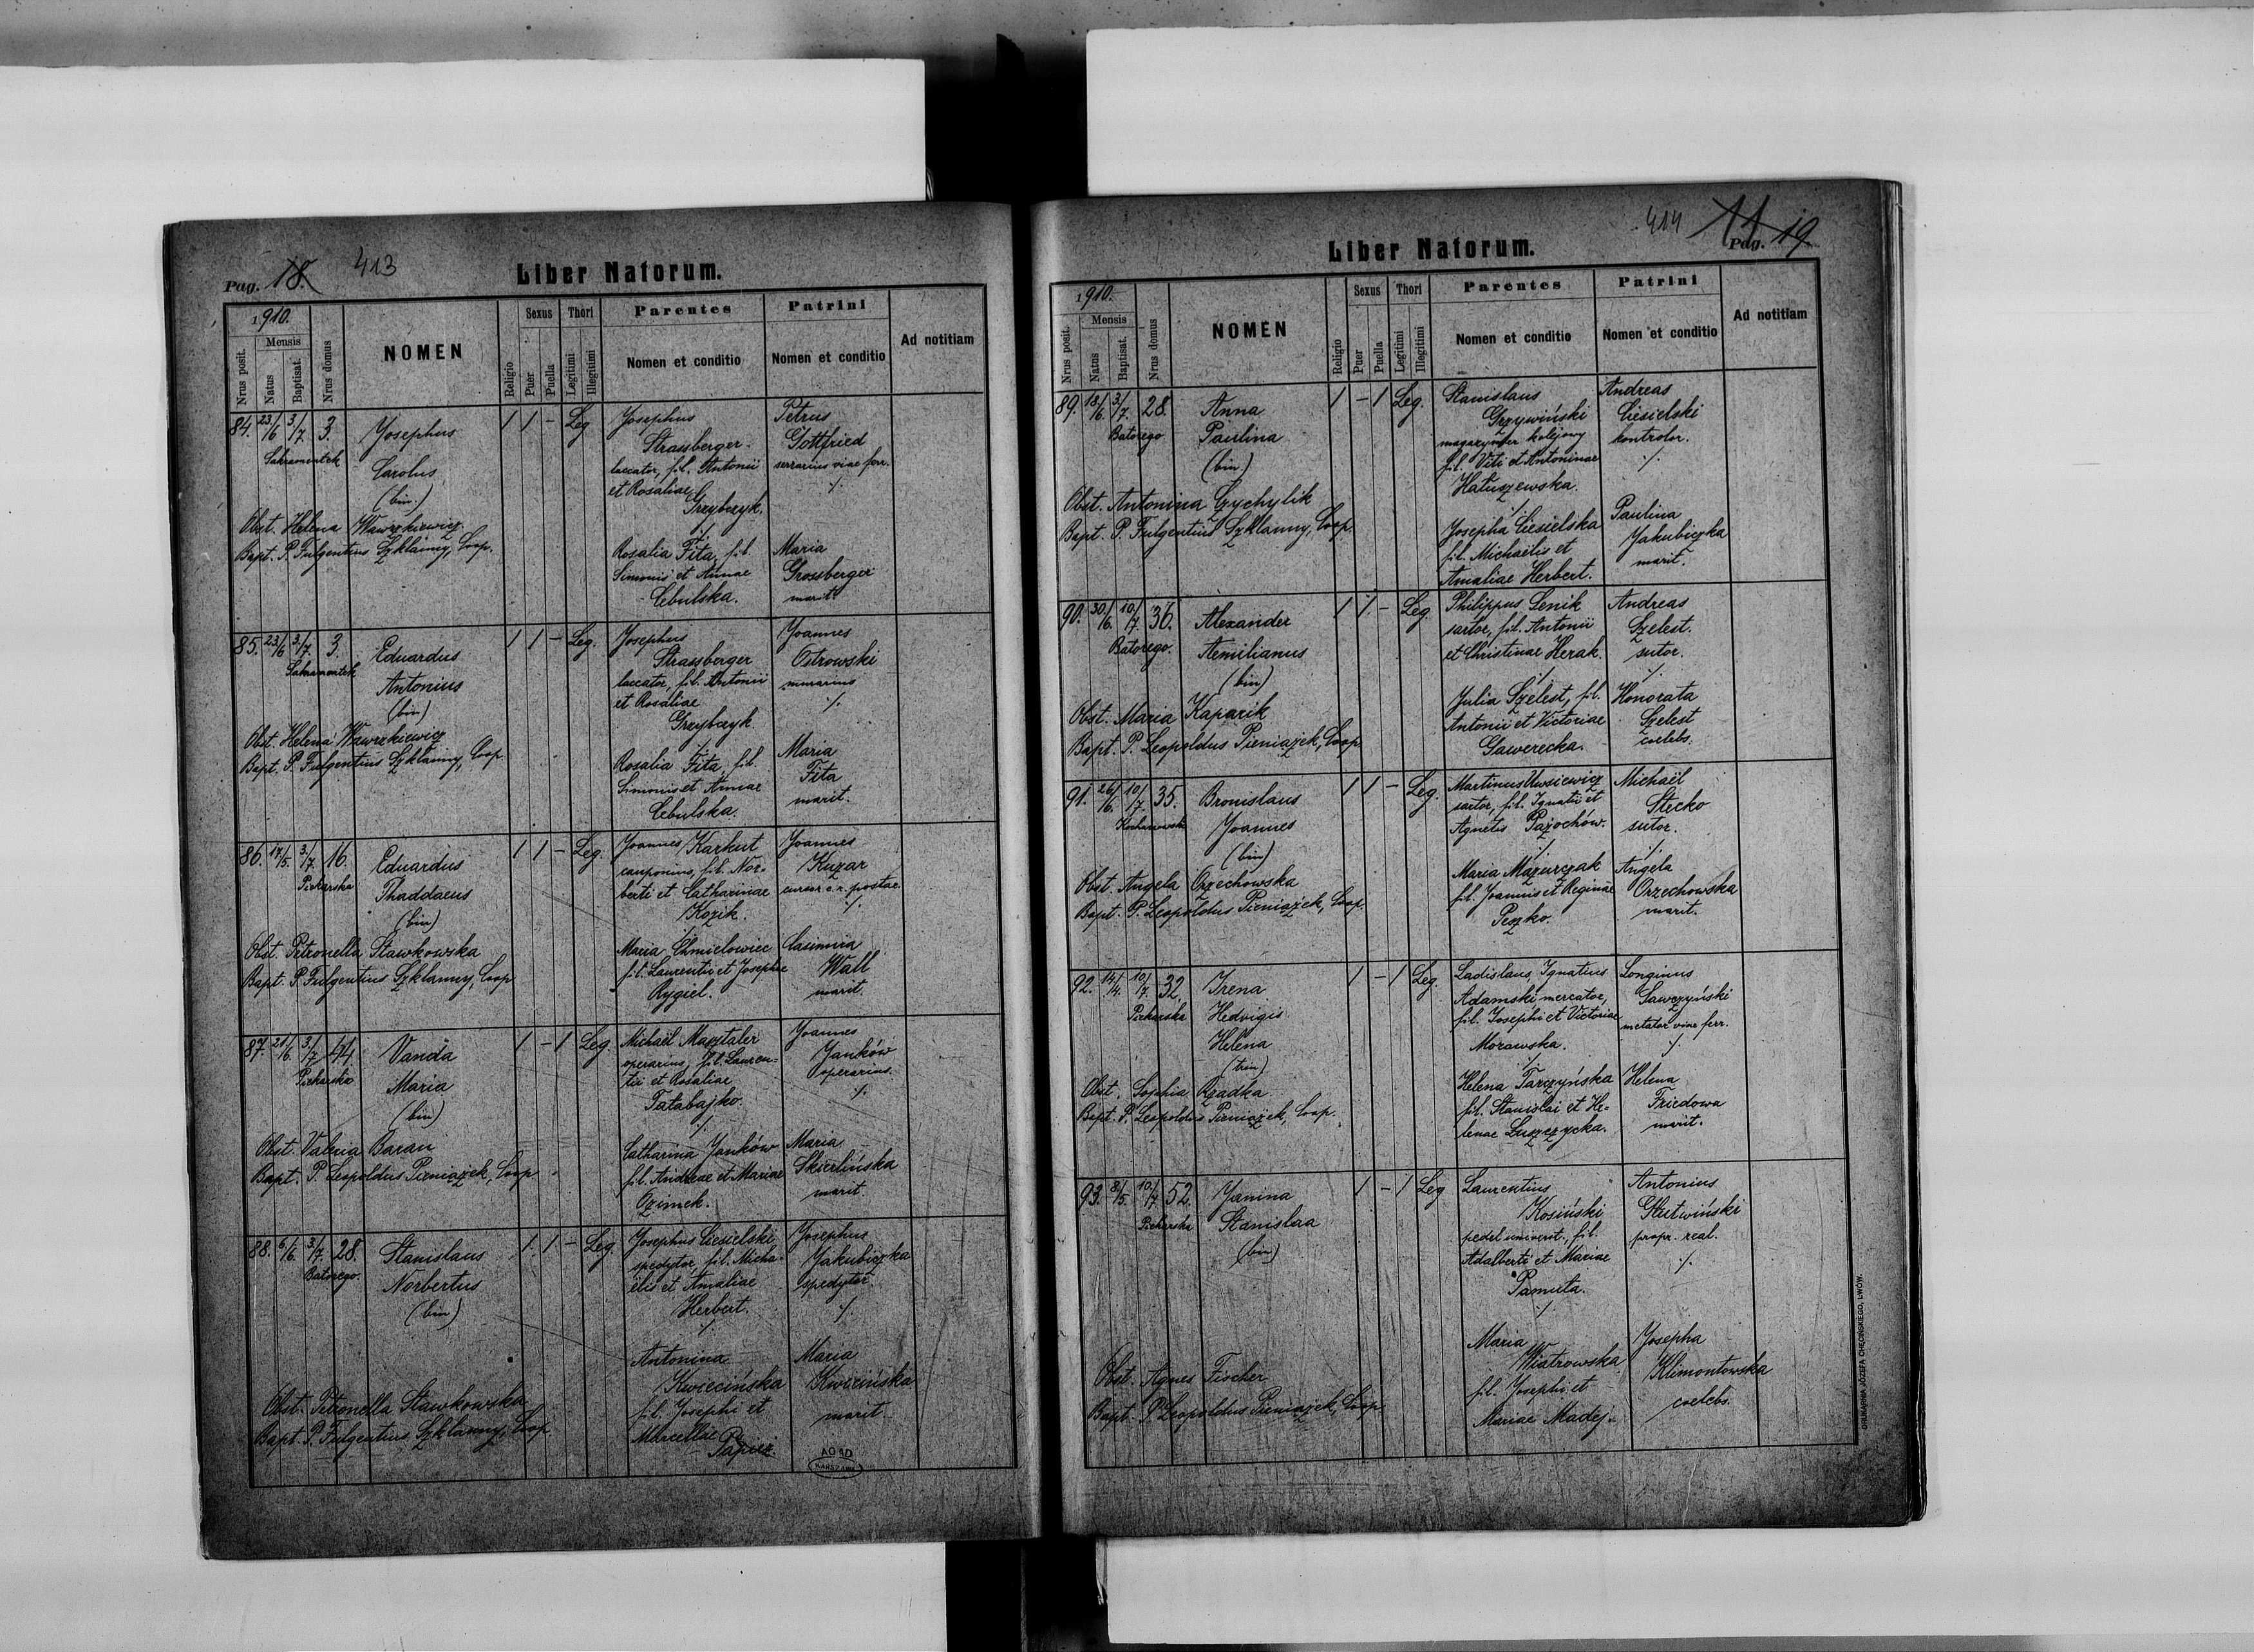 Pag. 18. 413 Liber Natorum.
1910.
Nrus posit.
Mensis
Natus
Baptisat.
Nrus domus
NOMEN
Religio
Sexus
Puer
Puella
Thori
Legitimi
Illegitimi
Parentes
Nomen et conditio
Patrini
Nomen et conditio
Ad notitiam
84. 23/6 3/7 3. Sakramentek
Josephus
Carolus
(bin)
1 1 - Leg
Josephus
Strassberger
laccator, fil. Antonii
et Rosaliae
Grzybczyk.
./.
Rosalia Fita, fil.
Simonis et Annae
Cebulska.
Petrus
Gottfried
serrarius viae ferr.
./.
Maria
Grossberger
marit.
Obst. Helena Wawrzkiewicz
Bapt. P. Fulgentius Szklanny, Coop.
85. 23/6 3/7 3. Sakramentek
Eduardus
Antonius
(bin)
1 1 - Leg.
Josephus
Strassberger
laccator, fil. Antonii
et Rosaliae
Grzybczyk
./.
Rosalia Fita, fil.
Simonis et Annae
Cebulska.
Joannes
Ostrowski
murarius
./.
Maria
Fita
marit.
Obst. Helena Wawrzkiewicz
Bapt. P. Fulgentius Szklanny, Coop
86. 17/5. 3/7 16. Piekarska
Eduardus
Thaddaeus
(bin)
1 1 - Leg.
Joannes Karkut
cauponius, fil. Nor-
berti et Catharinae
Kozik.
./.
Maria Chmielowiec
fil. Laurentii et Josephae
Rygiel.
Joannes
Kuzar
cursor c. r. postae
./.
Casimira
Wall
marit.
Obst. Petronella Stawkowska
Bapt. P. Fulgentius Szklanny, Coop
87. 21/6. 3/7 44. Piekarska
Vanda
Maria
(bin)
1 - 1 Leg.
Michaël Masztaler
operarius, fil. Lauren-
tii et Rosaliae
Tatabajko.
./.
Catharina Janków
fil. Andreae et Mariae
Ozimek.
Joannes
Janków
operarius.
./.
Maria
Skierlińska
marit.
Obst. Valeria Baran
Bapt. P. Leopoldus Pieniążek, Coop
88. 6/6. 3/7. 28. Batorego.
Stanislaus
Norbertus
(bin)
1. 1 - Leg.
Josephus Ciesielski
spedytor, fil. Micha-
ëlis et Amaliae
Herbert.
./.
Antonina
Kwiecińska
fil. Josephi et
Marcellae
Papiez
Josephus
Jakubiczka
spedytor.
./.
Maria
Kwiecińska
marit.
Obst. Petronella Stawkowska
Bapt. P. Fulgentius Szklanny, Coop
AGAD
WARSZAWA
Liber Natorum. 414 11 Pag. 19
1910.
Nrus posit.
Mensis
Natus
Baptisat.
Nrus domus
NOMEN
Religio
Sexus
Puer
Puella
Thori
Legitimi
Illegitimi
Parentes
Nomen et conditio
Patrini
Nomen et conditio
Ad notitiam
89. 18/6. 3/7. 28. Batorego
Anna
Paulina
(bin)
1 - 1 Leg.
Stanislaus
Grzywiński
magazynier kolejowy
fil. Viti et Antoninae
Hatuszewska.
./.
Josepha Ciesielska
fil. Michaëlis et
Amaliae Herbert.
Andreas
Ciesielski
kontrolor.
./.
Paulina
Jakubiczka
marit.
Obst. Antonina Gychylik
Bapt. P. Fulgentius Szklanny, Coop.
90. 30/6. 10/7 36. Batorego.
Alexander
Aemilianus
(bin)
1 1. - Leg.
Philippus Senik
sartor, fil. Antonii
et Christinae Herak.
./.
Julia Szelest, fil.
Antonii et Victoriae
Gawerecka.
Andreas
Szelest.
sutor.
./.
Honorata
Szelest
coelebs.
Obst. Maria Kaparik
Bapt. P. Leopoldus Pieniążek, Coop
91. 26/6. 10/7. 35.
Bronislaus
Joannes
(bin)
1 1 - Leg.
Martinus Uwsiewicz
sartor, fil. Ignatii et
Agnetis Pazochów.
./.
Maria Mazurczak
fil. Joannis et Reginae
Peszko.
Michaël
Stecko
sutor.
./.
Angela
Orzechowska
marit.
Obst. Angela Orzechowska
Bapt. P. Leopoldus Pieniążek, Coop.
92. 14/4. 10/7. 32. Piekarska
Irena
Hedvigis
Helena
(trin)
1 - 1 Leg.
Ladislaus Ignatius
Adamski mercator,
fil. Josephi et Victoriae
Morawska.
./.
Helena Tarczyńska
fil. Stanislai et He-
lenae Łuszczycka.
Longinus
Sawczyński
metator viae ferr.
./.
Helena
Friedowa
marit.
Obst. Sophia Rzadka
Bapt. P. Leopoldus Pieniążek, Coop.
93. 8/5. 10/7 52. Piekarska
Janina
Stanislaa
(bin)
1 - 1 Leg
Laurentius
Kosiński
pedel universit., fil.
Adalberti et Mariae
Pamuta.
./.
Maria
Wiatrowska
fil. Josephi et
Mariae Madej.
Antonius
Głutwiński
propr. real.
./.
Josepha
Klimontowska
coelebs.
Obst. Agnes Fischer
Bapt. P. Leopoldus Pieniążek, Coop
DRUKARNIA JÓZEFA CHĘCIŃSKIEGO, LWÓW.